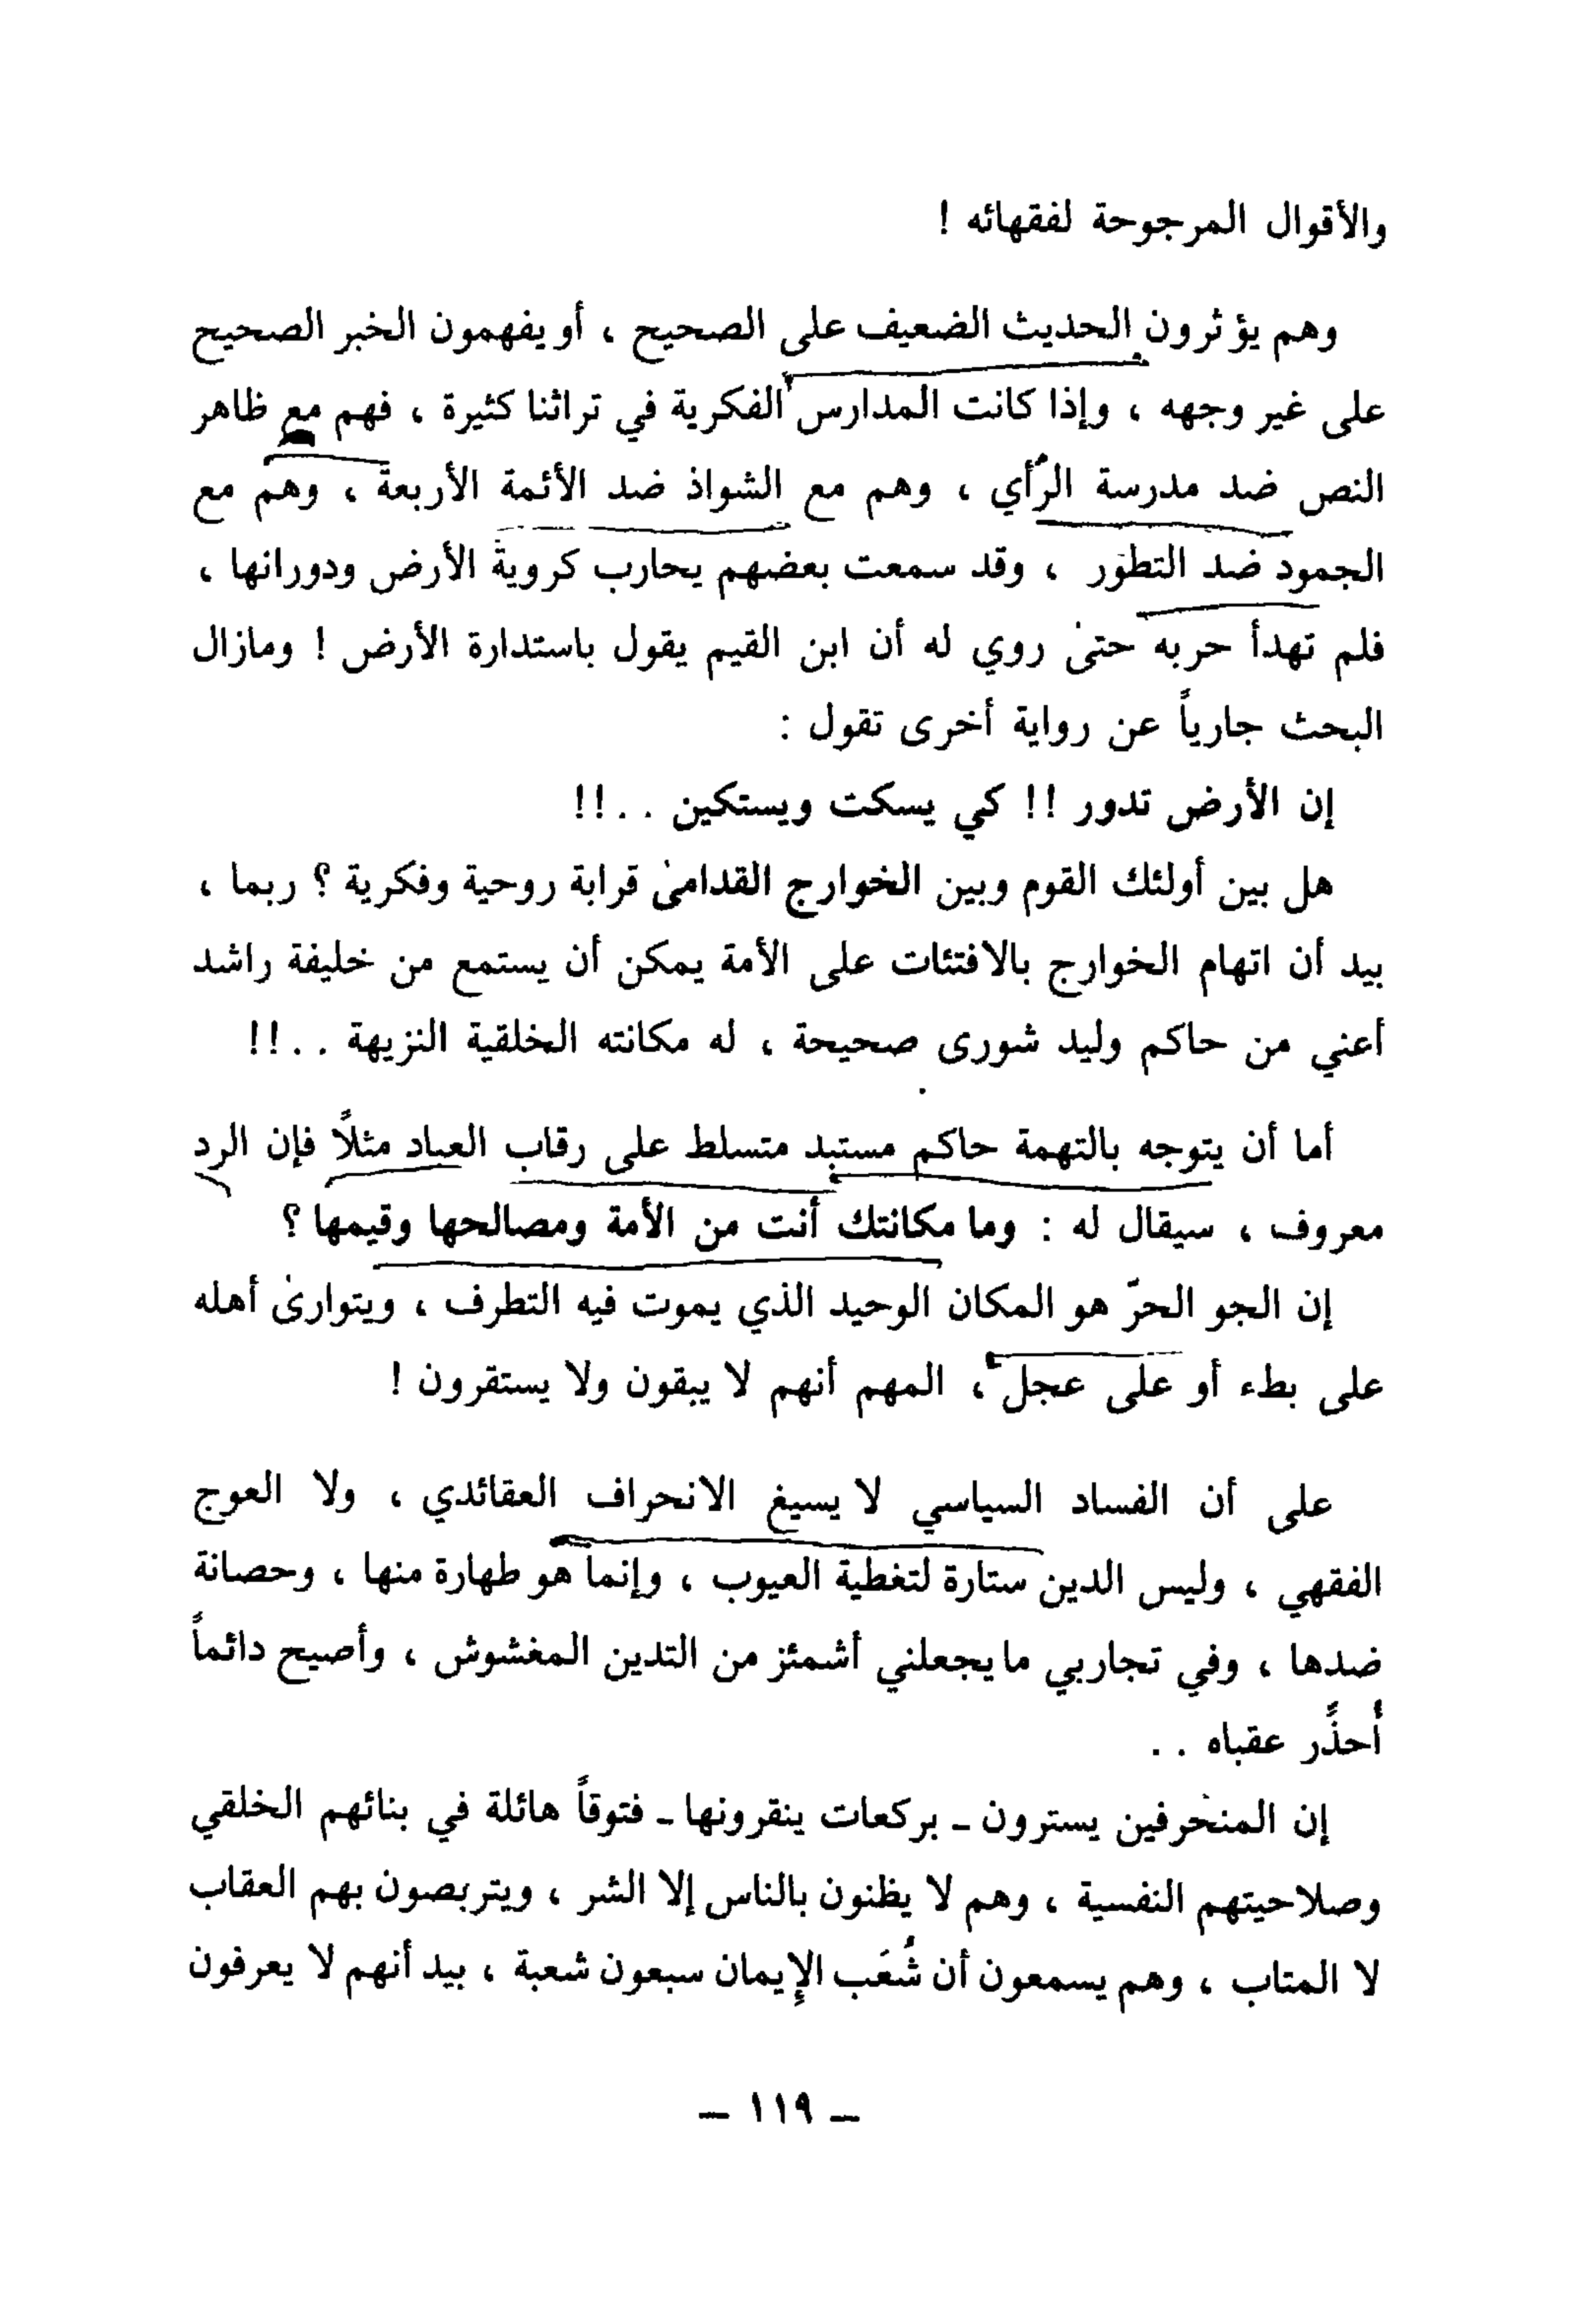 والأقوال المرجوحة لفقهائه !
وهم يؤثرون الحديث الضعيف على الصحيح ، أو يفهمون الخبر الصحيح
على غير وجهه ، وإذا كانت المدارس الفكرية في تراثنا كثيرة ، فهم مع ظاهر
النص ضد مدرسة الرأي ، وهم مع الشواذ ضد الأئمة الأربعة ، وهم مع
الجمود ضد التطور ، وقد سمعت بعضهم يحارب كروية الأرض ودورانها ،
فلم تهدأ حربه حتىٰ روي له أن ابن القيم يقول باستدارة الأرض ! ومازال
البحث جارياً عن رواية أخرى تقول :
إن الأرض تدور !! كي يسكت ويستكين . . !!
هل بين أولئك القوم وبين الخوارج القدامىٰ قرابة روحية وفكرية ؟ ربما ،
بيد أن اتهام الخوارج بالافتئات على الأمة يمكن أن يستمع من خليفة راشد
أعني من حاكم وليد شورى صحيحة ، له مكانته الخلقية النزيهة . . !!
أما أن يتوجه بالتهمة حاكم مستبد متسلط على رقاب العباد مثلاً فإن الرد
معروف ، سيقال له : وما مكانتك أنت من الأمة ومصالحها وقيمها ؟
إن الجو الحرّ هو المكان الوحيد الذي يموت فيه التطرف ، ويتوارىٰ أهله
على بطء أو على عجل ، المهم أنهم لا يبقون ولا يستقرون !
على أن الفساد السياسي لا يسيغ الانحراف العقائدي ، ولا العوج
الفقهي ، وليس الدين ستارة لتغطية العيوب ، وإنما هو طهارة منها ، وحصانة
ضدها ، وفي تجاربي ما يجعلني أشمئز من التدين المغشوش ، وأصيح دائماً
أُحذِّر عقباه . .
إن المنحرفين يسترون ـ بركعات ينقرونها ـ فتوقاً هائلة في بنائهم الخلقي
وصلاحيتهم النفسية ، وهم لا يظنون بالناس إلا الشر ، ويتربصون بهم العقاب
لا المتاب ، وهم يسمعون أن شُعَب الإِيمان سبعون شعبة ، بيد أنهم لا يعرفون
— ١١٩ —